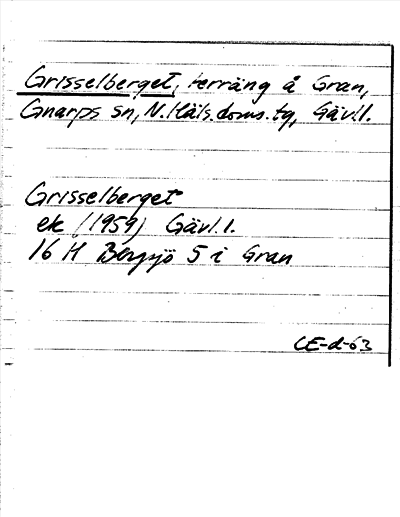 Grisselberget, terräng å Gran,
Gnarps sn, N. Häls. doms. tg, Gävl.l.
Grisselberget
ek (1959) Gävl.l.
16 H Bergsjö 5 i Gran
CE-d-63